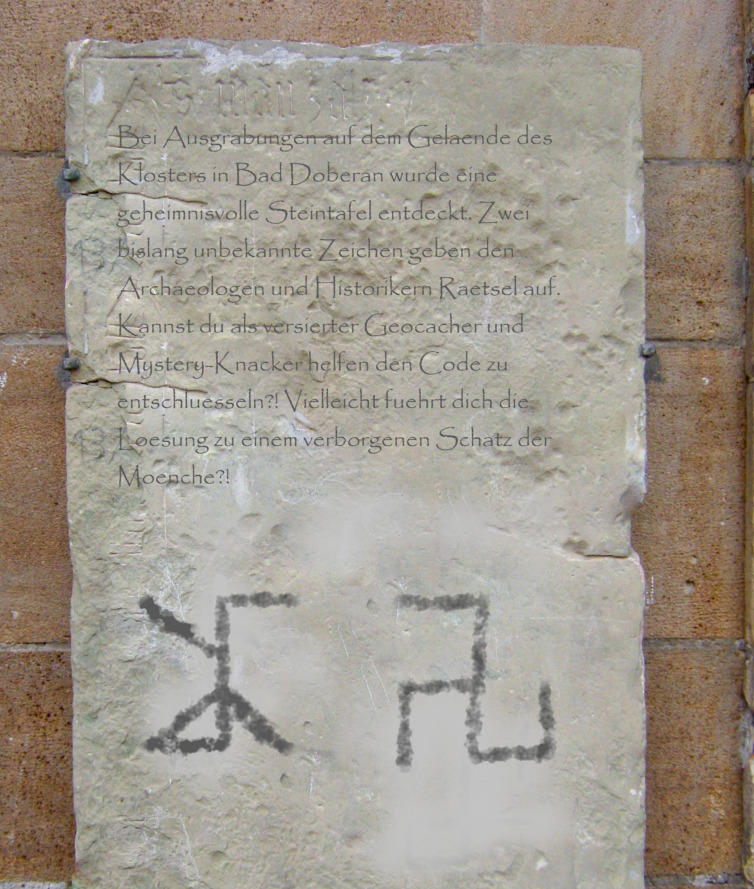 Bei Ausgrabungen auf dem Gelaende des
Klosters in Bad Doberan wurde eine
geheimnisvolle Steintafel entdeckt. Zwei
bislang unbekannte Zeichen geben den
Archaeologen und Historikern Raetsel auf.
Kannst du als versierter Geocacher und
Mystery-Knacker helfen den Code zu
entschluesseln?! Vielleicht fuehrt dich die
Loesung zu einem verborgenen Schatz der
Moenche?!